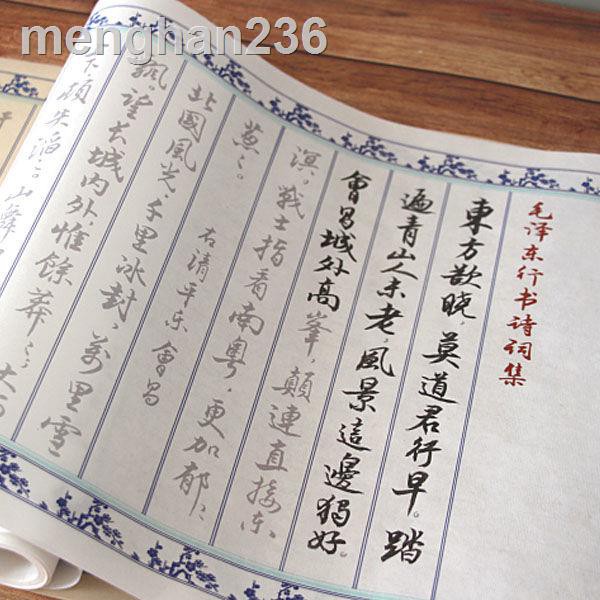 menghan236
毛泽东行书诗词集
東方欲晓，莫道君行早。踏
遍青山人未老，風景這邊獨好。
會昌城外高峯，顛連直接东
溟。戰士指看南粤，更加郁〻
葱〻。 右清平乐 會昌
北國風光 千里冰封，萬里雪
飘。望长城内外，惟餘莽〻；大
下，顿失滔〻。山舞